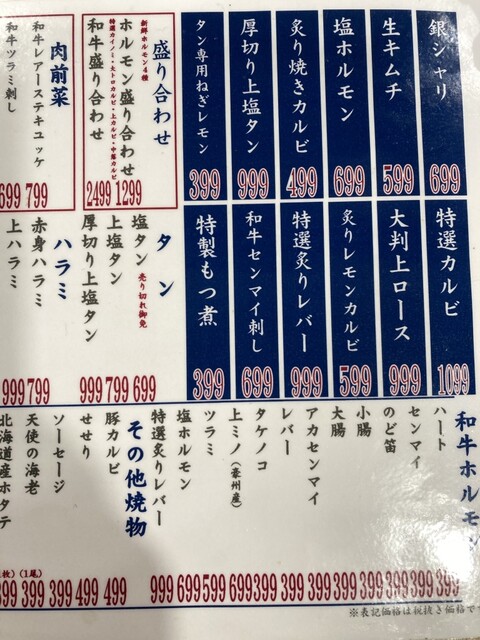 銀シャリ 699
生キムチ 599
塩ホルモン 699
炙り焼きカルビ 499
厚切り上塩タン 999
タン専用ねぎレモン 399
盛り合わせ
新鮮ホルモン4種
ホルモン盛り合わせ 1299
特選カイノミ・大トロカルビ・上カルビ・中落カルビ
和牛盛り合わせ 2499
肉前菜
和牛レアーステキユッケ 799
和牛ツラミ刺し 699
特選カルビ 1099
大判上ロース 999
炙りレモンカルビ 599
特選炙りレバー 999
和牛センマイ刺し 699
特製もつ煮 399
タン
塩タン 売り切れ御免 699
上塩タン 799
厚切り上塩タン 999
ハラミ
赤身ハラミ 799
上ハラミ 999
和牛ホルモン
ハート 399
センマイ 399
のど笛 399
小腸 399
大腸 399
アカセンマイ 399
レバー 399
タケノコ 399
上ミノ(豪州産) 699
ツラミ 599
塩ホルモン 699
特選炙りレバー 999
その他焼物
豚カルビ 499
せせり 499
ソーセージ 399
天使の海老 (1尾) 399
北海道産ホタテ 399
※表記価格は税抜き価格で